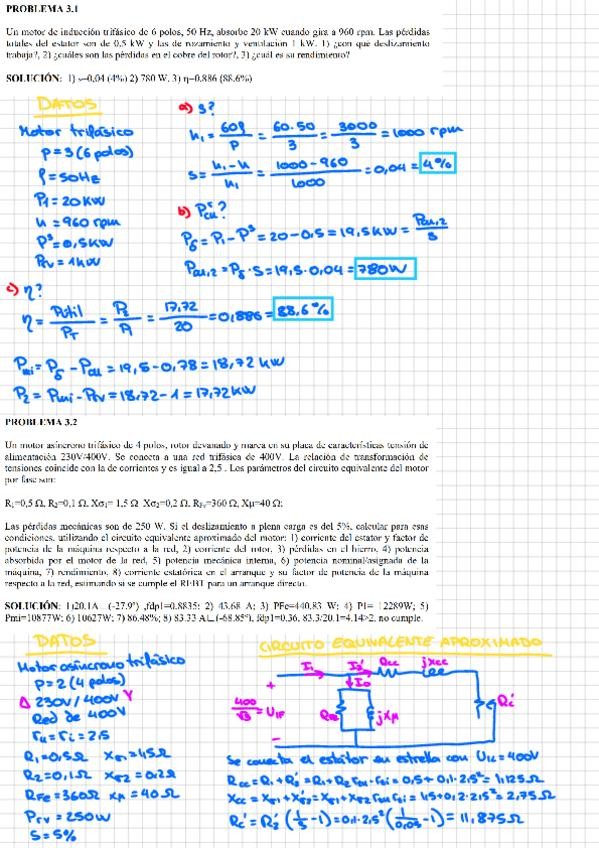 PROBLEMA 3.1
Un motor de inducción trifásico de 6 polos, 50 Hz, absorbe 20 kW cuando gira a 960 rpm. Las pérdidas
totales del estator son de 0,5 kW y las de rozamiento y ventilación 1 kW. 1) ¿con que deslizamiento
trabaja?, 2) ¿cuáles son las pérdidas en el cobre del rotor?, 3) ¿cuál es su rendimiento?
SOLUCIÓN: 1) s=0,04 (4%) 2) 780 W. 3) η=0,886 (88.6%)
DATOS
Motor trifásico
p=3 (6 polos)
f=50Hz
P1=20kW
n=960 rpm
Ps=0,5kW
Prv=1kW
a) s?
n1 = 60f/p = 60·50/3 = 3000/3 = 1000 rpm
s = n1-n/n1 = 1000-960/1000 = 0,04 = 4%
b) Pcu r?
Pδ = P1 - Ps = 20-0,5 = 19,5kW = Pcu,2/s
Pcu,2 = Pδ · s = 19,5·0,04 = 780W
c) η?
η = Pútil/PT = P2/P1 = 17,72/20 = 0,886 = 88,6%
Pmi = Pδ - Pcu = 19,5-0,78 = 18,72 kW
P2 = Pmi - Prv = 18,72 - 1 = 17,72kW
PROBLEMA 3.2
Un motor asíncrono trifásico de 4 polos, rotor devanado y marca en su placa de características tensión de
alimentación 230V/400V. Se conecta a una red trifásica de 400V. La relación de transformación de
tensiones coincide con la de corrientes y es igual a 2,5 . Los parámetros del circuito equivalente del motor
por fase son:
R1=0,5 Ω, R2=0,1 Ω, Xσ1= 1,5 Ω Xσ2=0,2 Ω, RFe=360 Ω, Xμ=40 Ω;
Las pérdidas mecánicas son de 250 W. Si el deslizamiento a plena carga es del 5%, calcular para esas
condiciones, utilizando el circuito equivalente aproximado del motor: 1) corriente del estator y factor de
potencia de la máquina respecto a la red, 2) corriente del rotor, 3) pérdidas en el hierro, 4) potencia
absorbida por el motor de la red, 5) potencia mecánica interna, 6) potencia nominal/asignada de la
máquina, 7) rendimiento. 8) corriente estatórica en el arranque y su factor de potencia de la máquina
respecto a la red, estimando si se cumple el REBT para un arranque directo.
SOLUCIÓN: 1)20.1A (-27.9º) ,fdp1=0.8835; 2) 43.68 A; 3) PFe=440.83 W; 4) P1= 12289W; 5)
Pmi=10877W; 6) 10627W; 7) 86.48%; 8) 83.33 A∟(-68.85º), fdp1=0.36, 83.3/20.1=4.14>2, no cumple.
DATOS
Motor asíncrono trifásico
p=2 (4 polos)
Δ 230V/400V Y
Red de 400V
ru = ri = 2,5
R1=0,5Ω Xσ1=1,5Ω
R2=0,1Ω Xσ2=0,2Ω
RFe=360Ω Xμ=40Ω
Prv=250W
s=5%
CIRCUITO EQUIVALENTE APROXIMADO
I1 I2' Rcc jXcc
I0
+
400/√3 = U1F RFe jXμ Rc'
-
Se conecta el estátor en estrella con U1L=400V
Rcc = R1+R2' = R1+R2·ru·ri = 0,5+0,1·2,5² = 1,125Ω
Xcc = Xσ1+Xσ2' = Xσ1+Xσ2·ru·ri = 1,5+0,2·2,5² = 2,75Ω
Rc' = R2'(1/s -1) = 0,1·2,5²(1/0,05 -1) = 11,875Ω